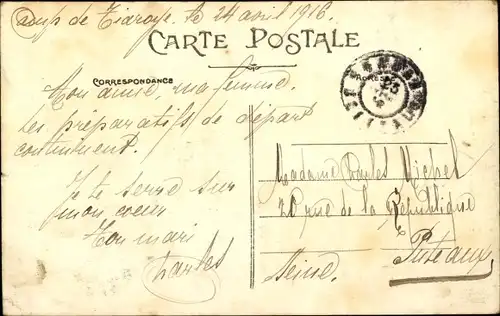 Camp de Tiaroye le 24 avril 1916.
CARTE POSTALE
CORRESPONDANCE
Mon aimée, ma femme.
Les préparatifs de départ
continuent.
Je te serre sur
mon cœur
Ton mari
Charles
Madame Charles Michel
rue de la République
Puteaux
Seine.